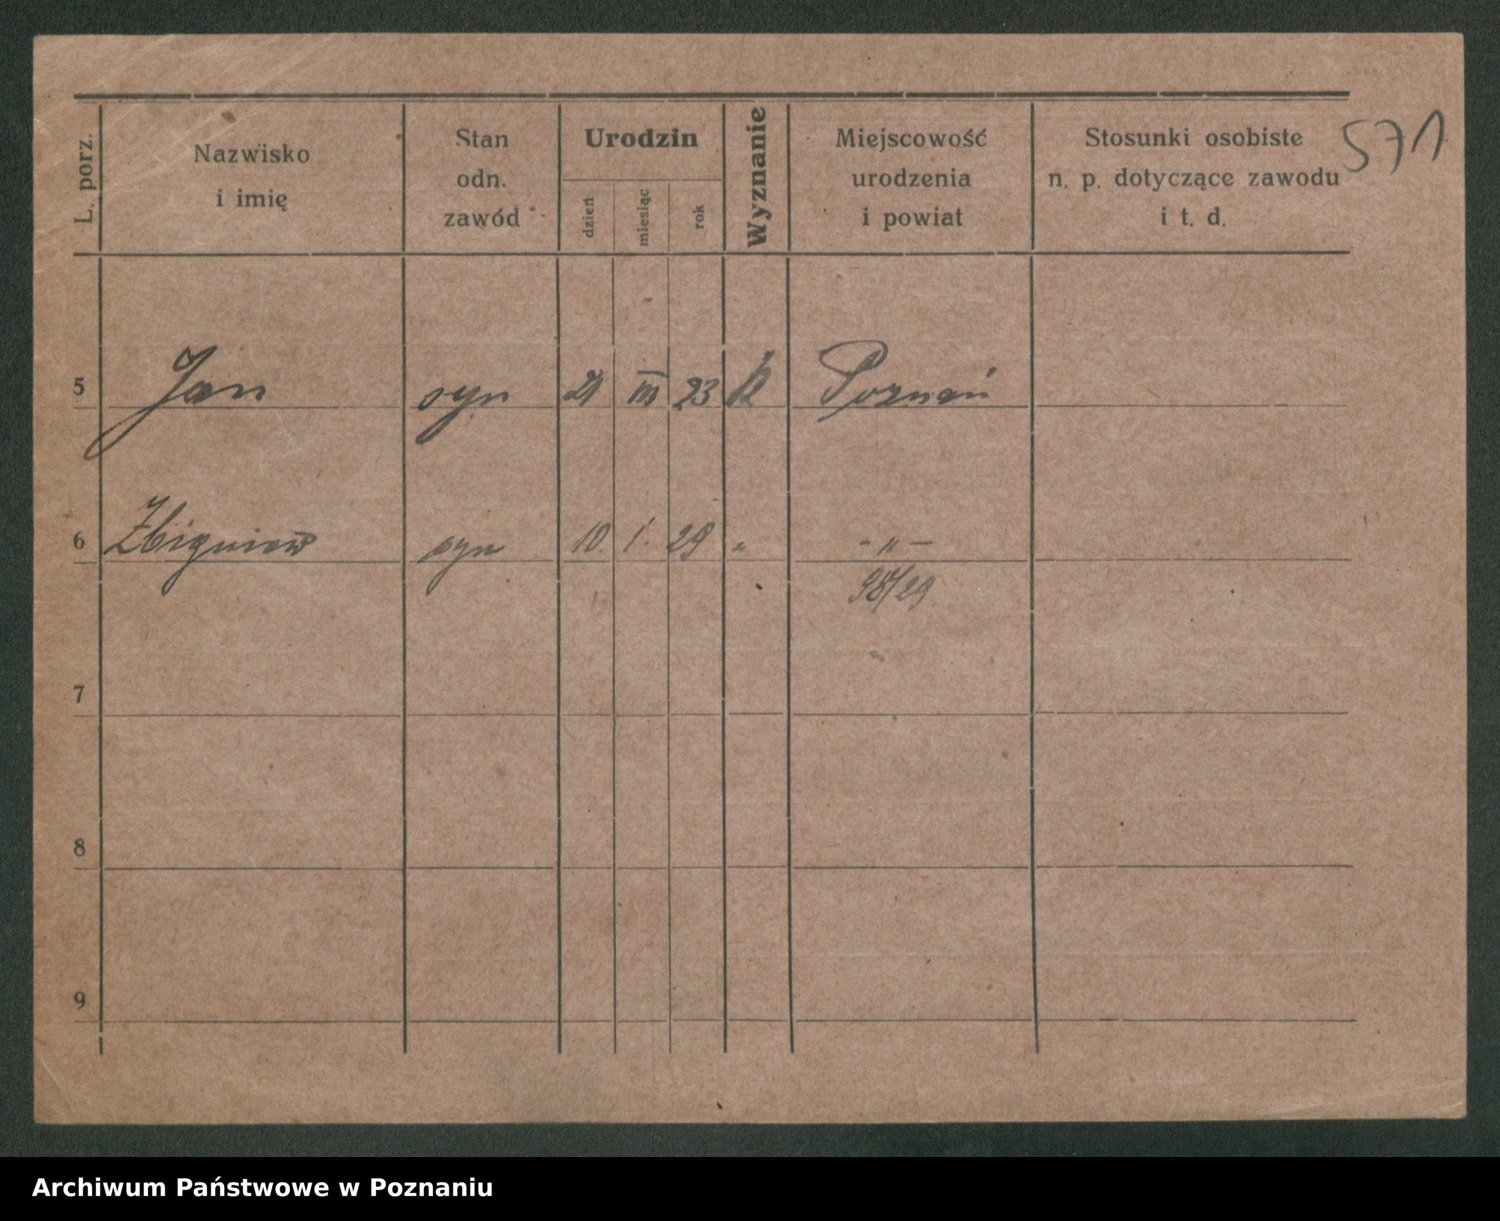 571
L. porz.
Nazwisko
i imię
Stan
odn.
zawód
Urodzin
dzień
miesiąc
rok
Wyznanie
Miejscowość
urodzenia
i powiat
Stosunki osobiste
n. p. dotyczące zawodu
i t. d.
5 Jan syn 21 III 23 k Poznań
6 Zbigniew syn 10. 1. 29 " - " -
98/29.
7
8
9
Archiwum Państwowe w Poznaniu